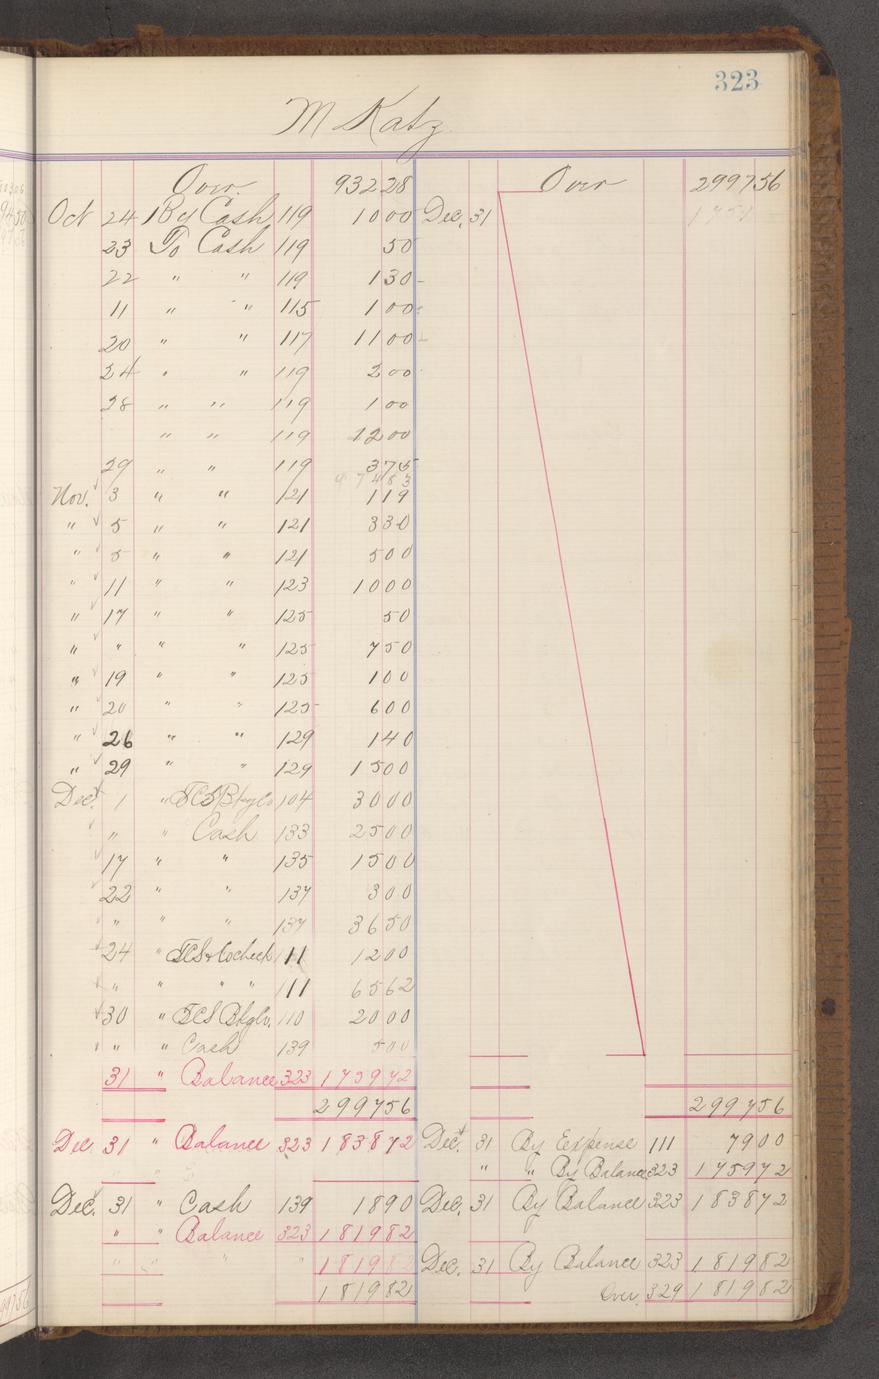 323
M Katz
Over 93228 Over 299756
Oct 24 By Cash 119 1000 Dec. 31
23 To Cash 119 50
22 " " 119 130
11 " " 115 100
20 " " 117 1100
24 " " 119 200
28 " " 119 100
" " 119 1200
29 " " 119 375
97483
Nov. 3 " " 121 119
" 5 " " 121 330
" 5 " " 121 500
" 11 " " 123 1000
" 17 " " 125 50
" " " " 125 750
" 19 " " 125 100
" 20 " " 125 600
" 26 " " 129 140
" 29 " " 129 1500
Dec. 1 " 104 3000
" " Cash 133 2500
17 " " 135 1500
22 " " 137 300
" " 137 3650
24 " 111 1200
" " " " 111 6562
30 " 110 2000
" " Cash 139 500
31 " Balance 323 175972
299756 299756
Dec 31 " Balance 323 183872 Dec. 31 By Expense 111 7900
" " By Balance 323 175972
Dec. 31 " Cash 139 1890 Dec. 31 By Balance 323 183872
" " Balance 323 181982
181982 Dec. 31 By Balance 323 181982
181982 Over 329 181982